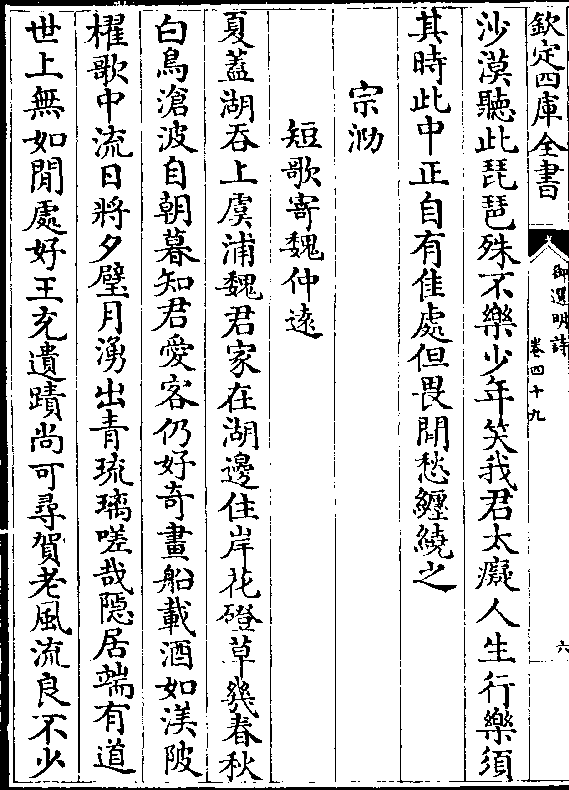 欽定四庫全書
御選明詩
卷四十九
六
沙漠聽此琵琶殊不樂少年笑我君太癡人生行樂須
其時此中正自有佳處但畏閒愁纏繞之
宗泐
短歌寄魏仲遠
夏蓋湖吞上虞浦魏君家在湖邊住岸花磴草幾春秋
白鳥滄波自朝暮知君愛客仍好奇畫船載酒如渼陂
櫂歌中流日將夕璧月湧出青琉璃嗟哉隱居端有道
世上無如閒處好王充遺蹟尚可尋賀老風流良不少